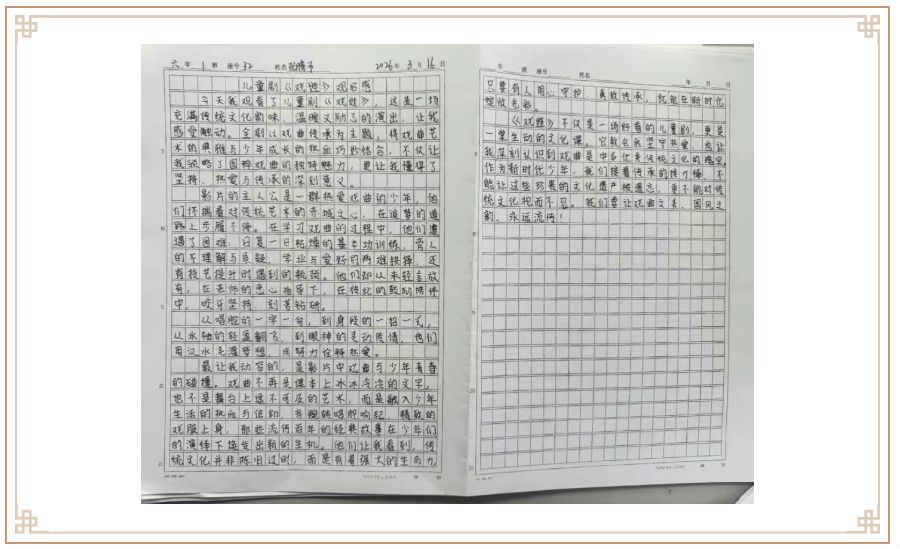 六 年 1 班 座号 32 姓名 2026 年 3 月 16 日
儿童剧《戏链》观后感
今天我观看了儿童剧《戏链》，这是一场
充满传统文化韵味、温暖又励志的演出，让我
感受触动。全剧以戏曲传承为主题，将戏曲艺
术的典雅与少年成长的热血巧妙结合，不仅让
我领略了国粹戏曲的独特魅力，更让我懂得了
坚持、热爱与传承的深刻意义。
影片的主人公是一群热爱戏曲的少年，他
们怀揣着对传统艺术的赤诚之心，在追梦的道
路上步履不停。在学习戏曲的过程中，他们遭
遇了困难：日复一日枯燥的基本功训练，旁人
的不理解与质疑，学业与爱好的两难抉择，还
有技艺提升时遇到的瓶颈。他们却从未轻言放
弃，在老师的悉心指导下，在彼此的鼓励陪伴
中，咬牙坚持，刻苦钻研。
从唱腔的一字一句，到身段的一招一式，
从水袖的轻盈翻飞，到眼神的灵动传情，他们
用汗水浇灌梦想，用努力诠释热爱。
最让我动容的，是影片中戏曲与少年青春
的碰撞。戏曲不再是课本上冰冰冷冷的文字，
也不是舞台上遥不可及的艺术，而是融入少年
生活的热血与信仰。当婉转唱腔响起，精致的
戏服上身，那些流传百年的经典故事在少年们
的演绎下焕发出新的生机。他们让我看到，传
统文化并非陈旧过时，而是有着强大的生命力。
年 班 座号 姓名 年 月 日
只要有人用心守护、勇敢传承，就能在新时代
绽放光彩。
《戏链》不仅是一场好看的儿童剧，更是
一堂生动的文化课。它教会我坚守热爱，也让
我深刻认识到戏曲是中华优秀传统文化的瑰宝。
作为新时代少年，我们接着传承的接力棒，不
能让这些珍贵的文化遗产被遗忘，更不能对传
统文化视而不见。我们要让戏曲之美、国风之
韵，永远流传！